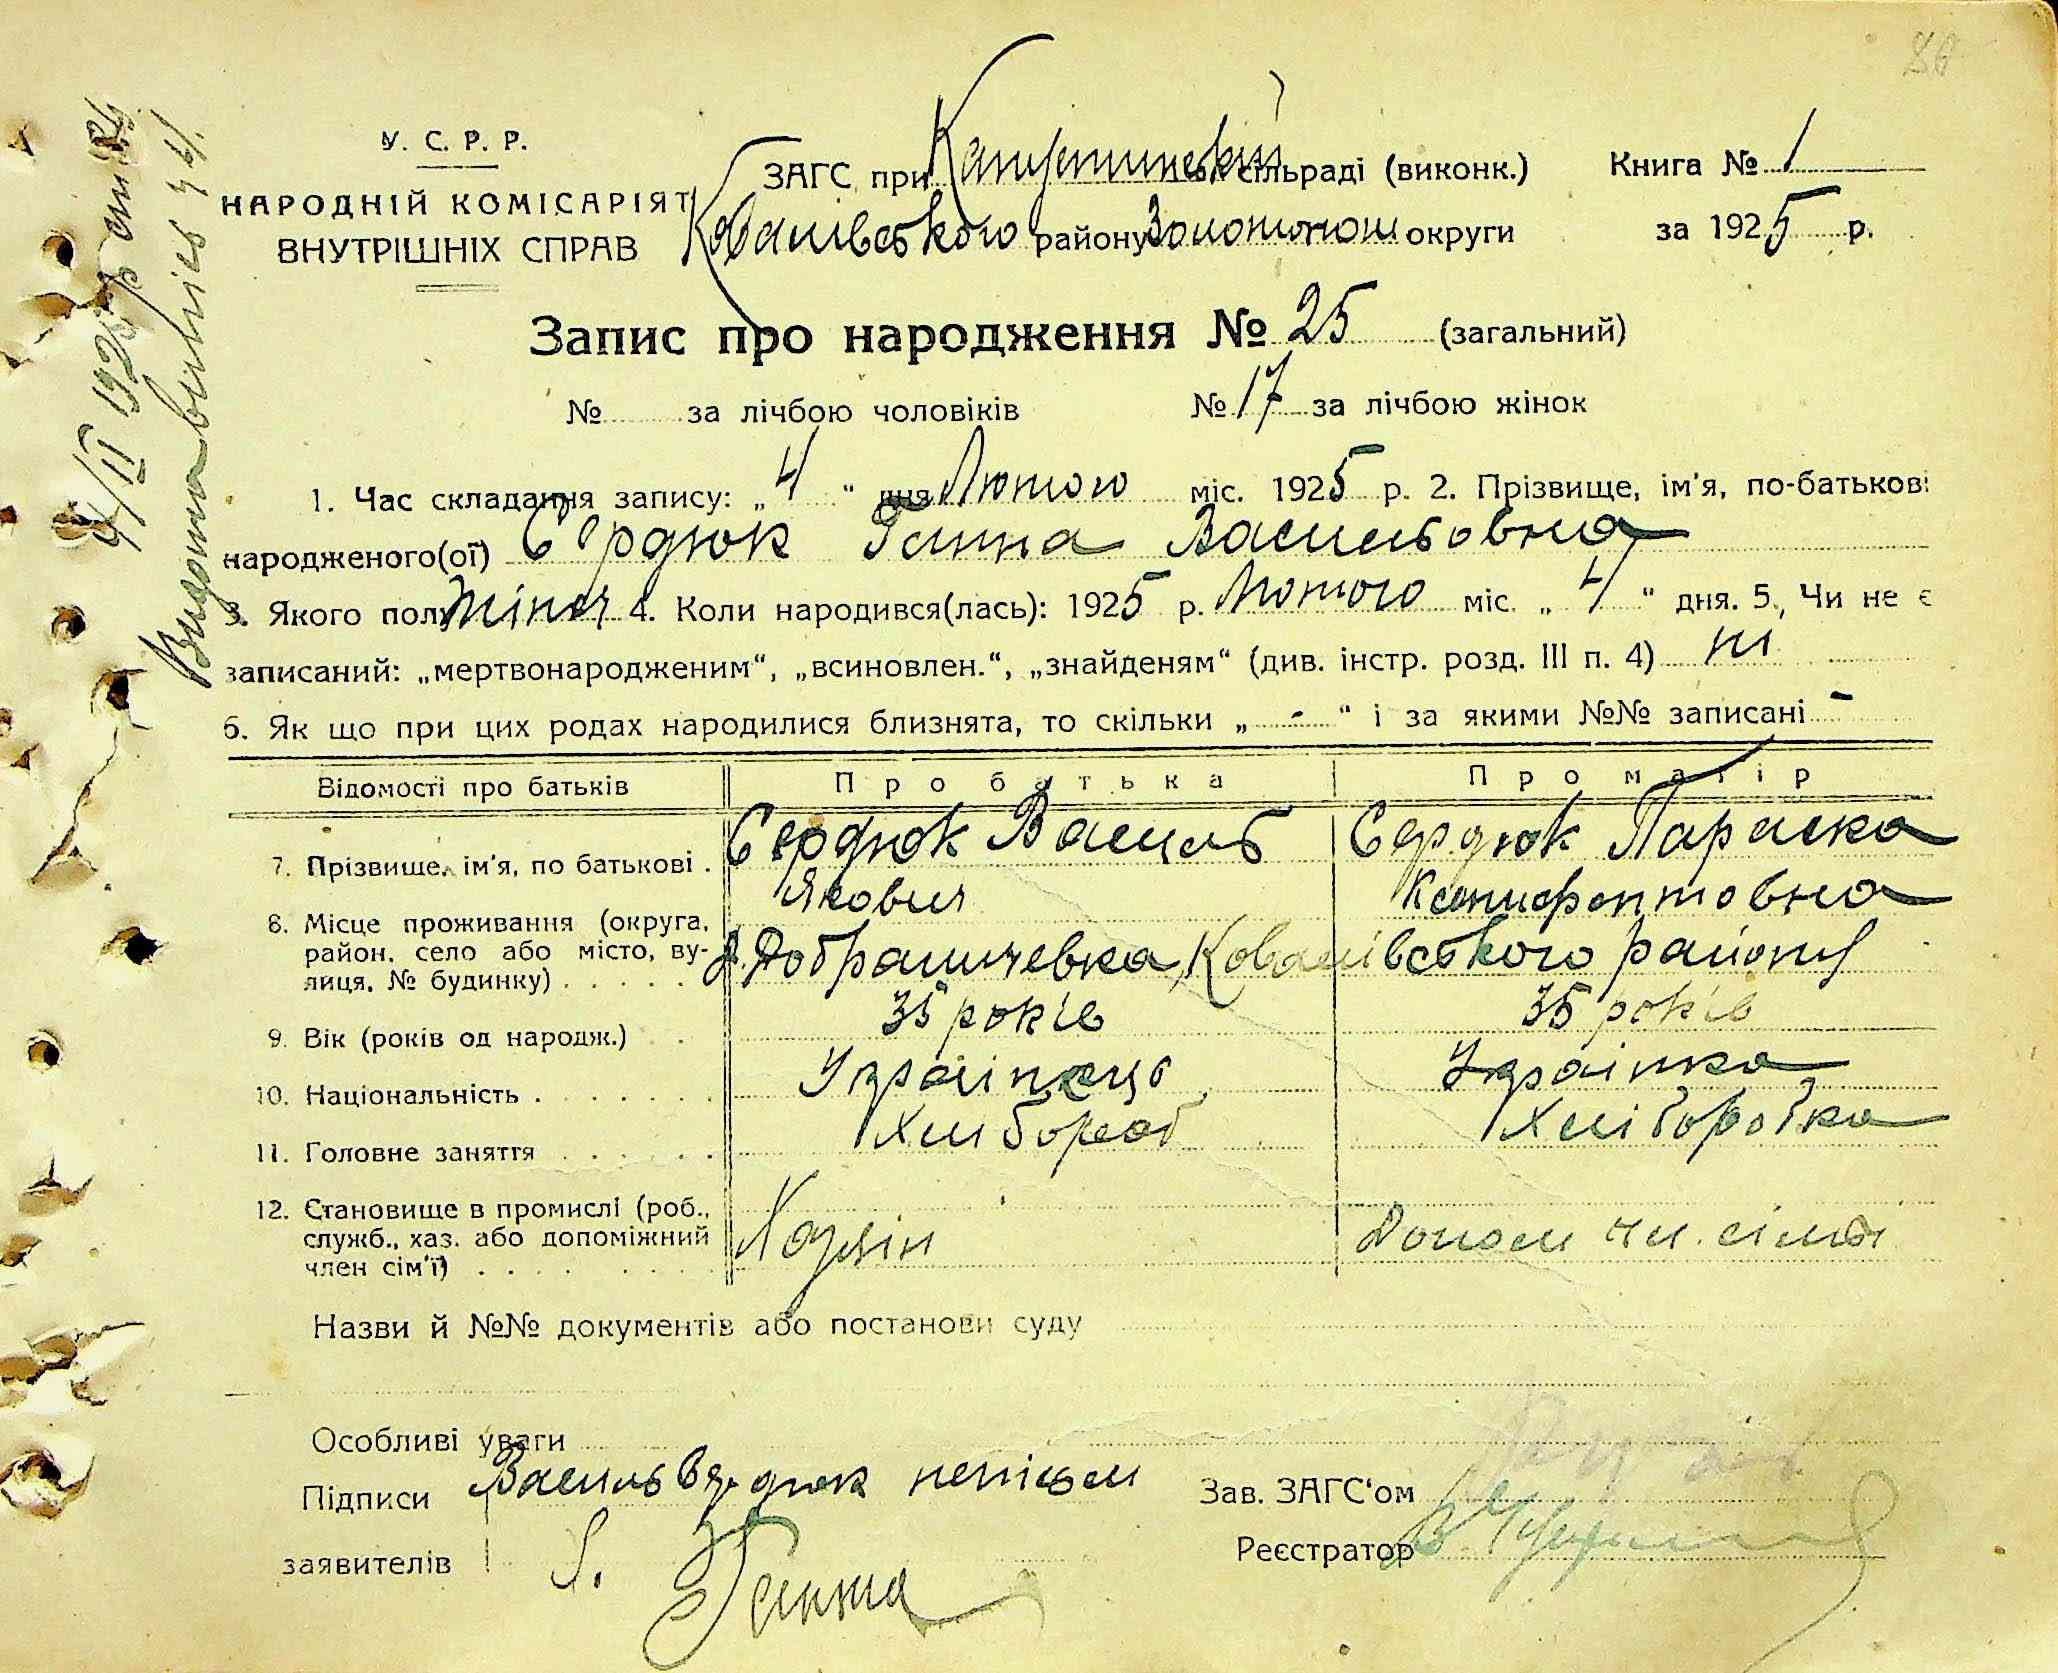 80
У. С. Р. Р.
НАРОДНІЙ КОМІСАРІЯТ
ВНУТРІШНІХ СПРАВ
ЗАГС при сільраді (виконк.)
Ковалівського району Золотонош округи
Книга № 1
за 1925 р.
Запис про народження № 25 (загальний)
№ за лічбою чоловіків № 17 за лічбою жінок
1. Час складання запису: „4“ дня Лютого міс. 1925 р. 2. Прізвище, ім'я, по-батькові
народженого(ої) Сердюк Ганна Васильовна
3. Якого полу Жіноч 4. Коли народився(лась): 1925 р. Лютого міс. „4“ дня. 5. Чи не є
записаний: „мертвонародженим“, „всиновлен.“, „знайденям“ (див. інстр. розд. III п. 4) ні
6. Як що при цих родах народилися близнята, то скільки „-“ і за якими №№ записані -
Відомості про батьків Про батька Про матір
7. Прізвище, ім'я, по батькові . Сердюк Василь Сердюк Параска
Якович Ксенифонтовна
8. Місце проживання (округа,
район, село або місто, ву-
лиця, № будинку) . . . . . Добраничевка, Ковалівського району
9. Вік (років од народж.) . . 35 років 35 років
10. Національність . . . . . . . Українець Українка
11. Головне заняття . . . . . . Хлібороб Хліборобка
12. Становище в промислі (роб.,
служб., хаз. або допоміжний
член сім'ї) . . . . . . . Хазяін Допом чл. сімьі
Назви й №№ документів або постанови суду
Особливі уваги
Підписи Василь Сердюк
заявителів
Зав. ЗАГС'ом
Реєстратор
4/II 1925 р
Видана випись